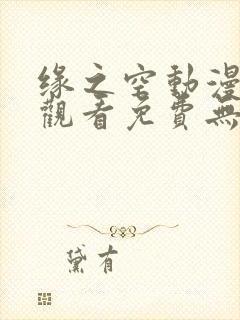 缘之空動漫
觀看免費無
黛有